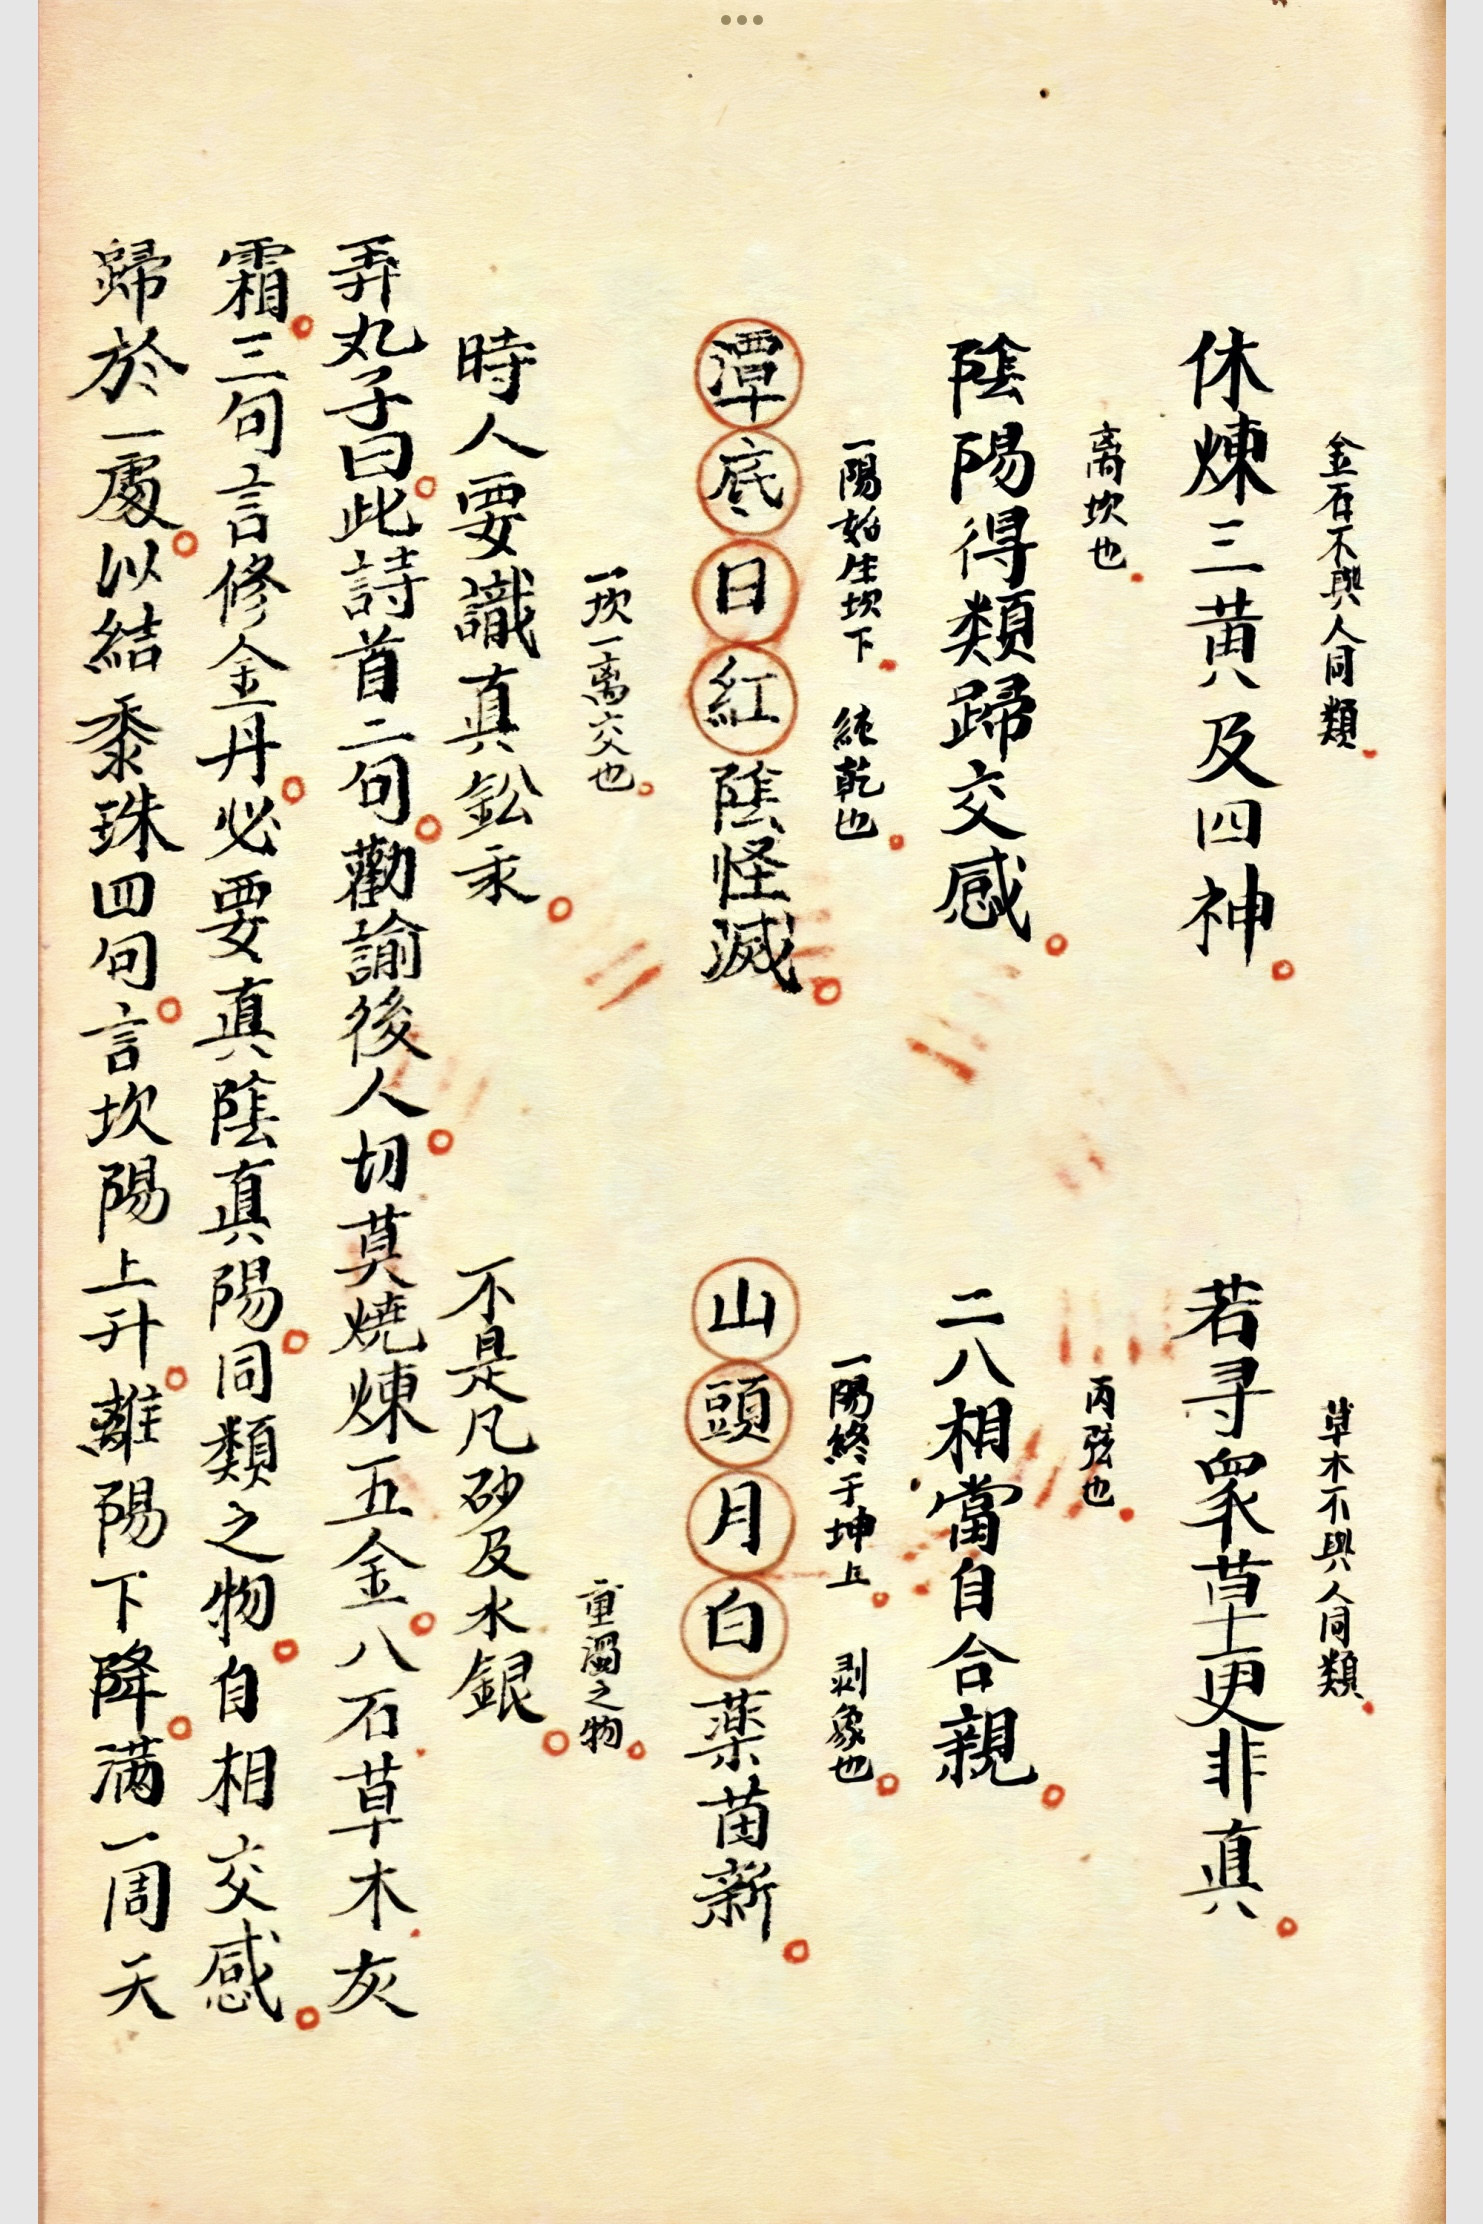 金石不與人同類　草木不與人同類
休煉三黃及四神　若尋衆草更非真
离坎也　丙弦也
陰陽得類歸交感　二八相當自合親
一陽始生坎下　純乾也　一陽終于坤上　剥象也
潭底日紅陰怪滅　山頭月白薬苗新
一坎一离交也　重濁之物
時人要識真鈆汞　不是凡砂及水銀
弄丸子曰此詩首二句勸諭後人切莫燒煉五金八石草木灰
霜三句言修金丹必要真陰真陽同類之物自相交感
歸於一處以結黍珠四句言坎陽上升離陽下降滿一周天